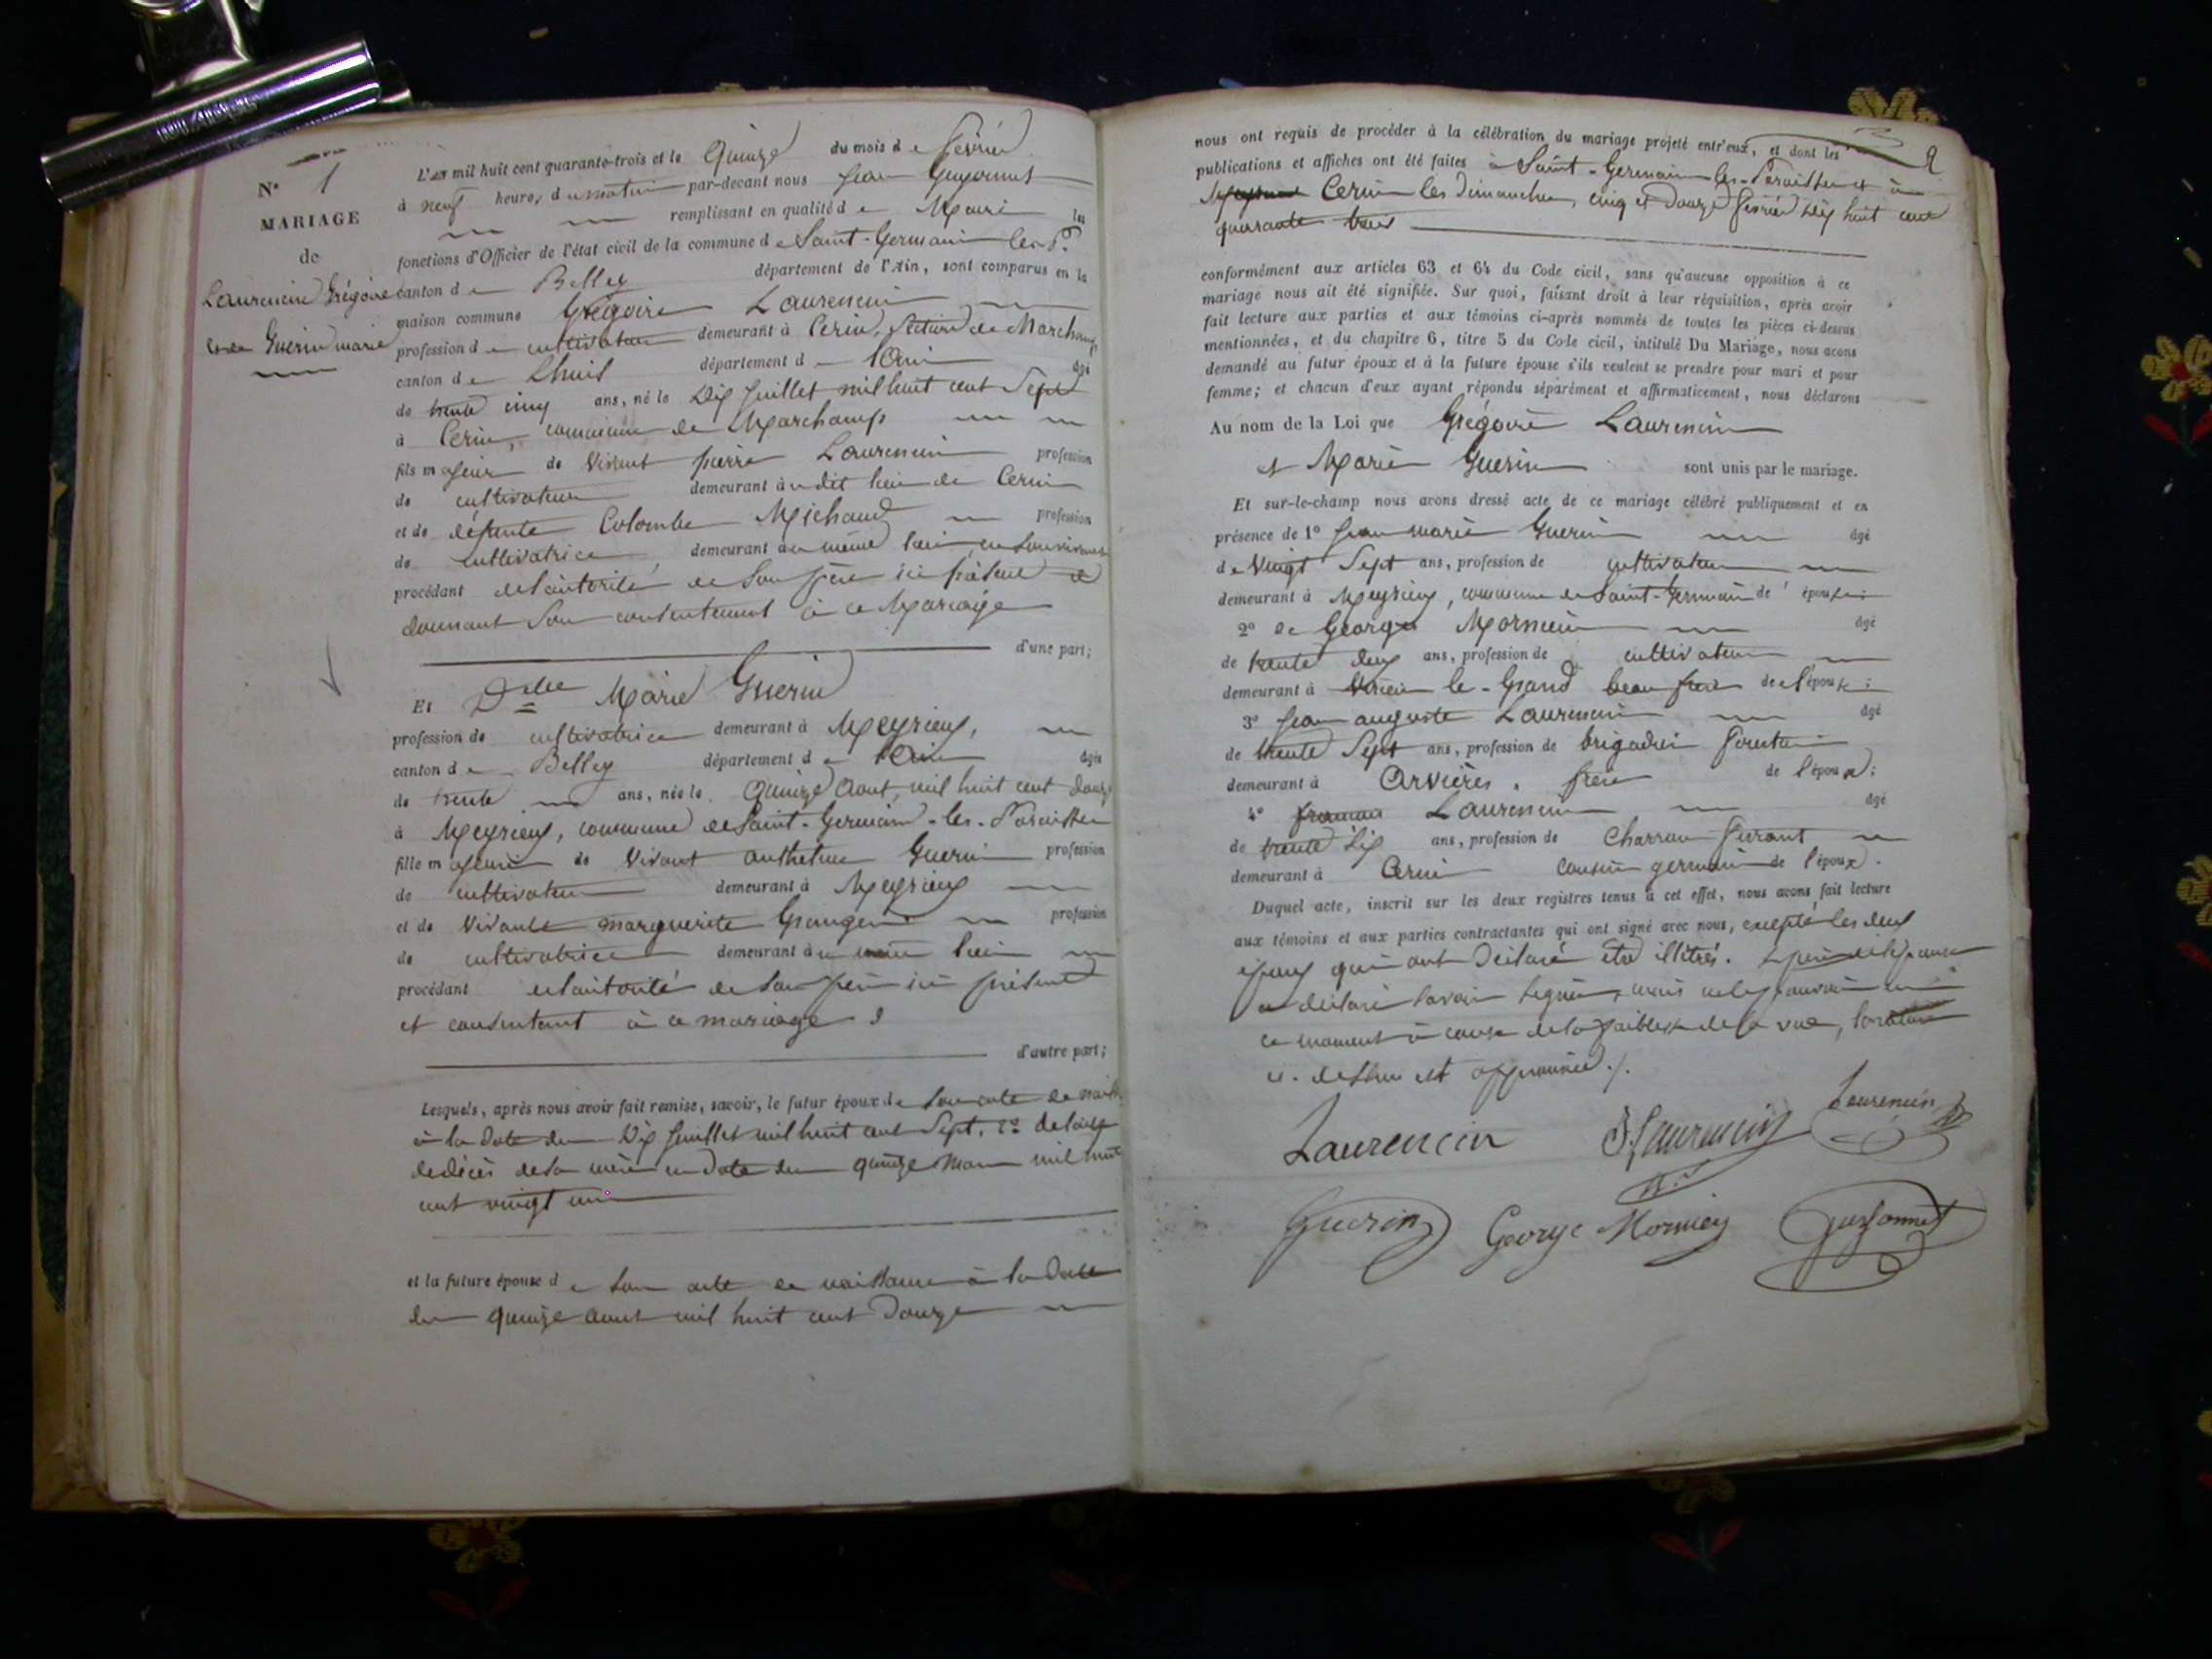 N° 1
MARIAGE
de
Laurencin Grégoire
et de Guerin marie
L'an mil huit cent quarante-trois et le Quinze du mois de février
à neuf heures du matin par-devant nous Jean
remplissant en qualité de Maire les
fonctions d'Officier de l'état civil de la commune de Saint-Germain les P.
canton de Belley département de l'Ain, sont comparus en la
maison commune Grégoire Laurencin
profession de cultivateur demeurant à Cerin, section de Marchamp
canton de Lhuis département de l'Ain âgé
de trente cinq ans, né le Dix Juillet mil huit cent Sept
à Cerin, commune de Marchamp
fils majeur de Vivant pierre Laurencin profession
de cultivateur demeurant au dit lieu de Cerin
et de défunte Colombe Michaud profession
de cultivatrice demeurant au même lieu, en son vivant
procédant de l'autorité de son père ici présent et
donnant son consentement à ce Mariage
d'une part;
Et Delle Marie Guerin
profession de cultivatrice demeurant à Meyrieux,
canton de Belley département de l'Ain âgée
de trente ans, née le Quinze Aout, mil huit cent douze
à Meyrieux, commune de Saint-Germain-les-Paroisses
fille majeure de Vivant Anthelme Guerin profession
de cultivateur demeurant à Meyrieux
et de Vivante marguerite profession
de cultivatrice demeurant au même lieu
procédant de l'autorité de son père ici présent
et consentant à ce mariage
d'autre part;
Lesquels, après nous avoir fait remise, savoir, le futur époux de son acte de
à la date du Dix Juillet mil huit cent Sept, 2° de l'acte
de décès de sa mère en date du quinze Mars mil huit
cent vingt un
et la future épouse de son acte de naissance à la date
du quinze aout mil huit cent Douze
2
nous ont requis de procéder à la célébration du mariage projeté entr'eux, et dont les
publications et affiches ont été faites à Saint-Germain-les-Paroisses et à
Cerin les dimanches, cinq et douze février huit cent
quarante trois
conformément aux articles 63 et 64 du Code civil, sans qu'aucune opposition à ce
mariage nous ait été signifiée. Sur quoi, faisant droit à leur réquisition, après avoir
fait lecture aux parties et aux témoins ci-après nommés de toutes les pièces ci-dessus
mentionnées, et du chapitre 6, titre 5 du Code civil, intitulé Du Mariage, nous avons
demandé au futur époux et à la future épouse s'ils veulent se prendre pour mari et pour
femme; et chacun d'eux ayant répondu séparément et affirmativement, nous déclarons
Au nom de la Loi que Grégoire Laurencin
et Marie Guerin sont unis par le mariage.
Et sur-le-champ nous avons dressé acte de ce mariage célébré publiquement et en
présence de 1° Jean marie Guerin âgé
de Vingt Sept ans, profession de cultivateur
demeurant à Meyrieux, commune de Saint-Germain de l'épouse;
2° de George âgé
de trente deux ans, profession de cultivateur
demeurant à Virieu le-Grand beau frère de l'épouse;
3° Jean auguste Laurencin âgé
de trente Sept ans, profession de brigadier forestier
demeurant à Arvières, frère de l'époux;
4° Laurencin âgé
de trente Six ans, profession de Charron
demeurant à Cerin cousin germain de l'époux.
Duquel acte, inscrit sur les deux registres tenus à cet effet, nous avons fait lecture
aux témoins et aux parties contractantes qui ont signé avec nous, excepté les deux
époux qui ont Déclaré être illétrés. Le père de l'épouse
a déclaré savoir signer, mais ne le pouvoir en
ce moment à cause de la faiblesse de sa vue, la rature
ci-dessus est approuvée./.
Laurencin Laurencin Laurencin
Guerin George